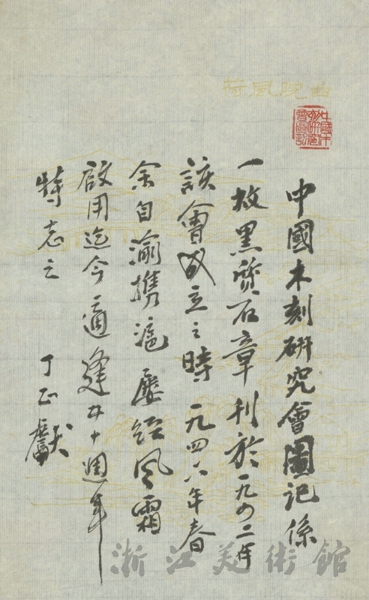 曲院風荷
中國木刻研究會圖記係
一枚黑質石章刊於一九四二年
該會成立之時 一九四六年春
余自渝携滬 歷經風霜
啟用迄今適逢五十週年
特志之 丁正獻
浙江美術館